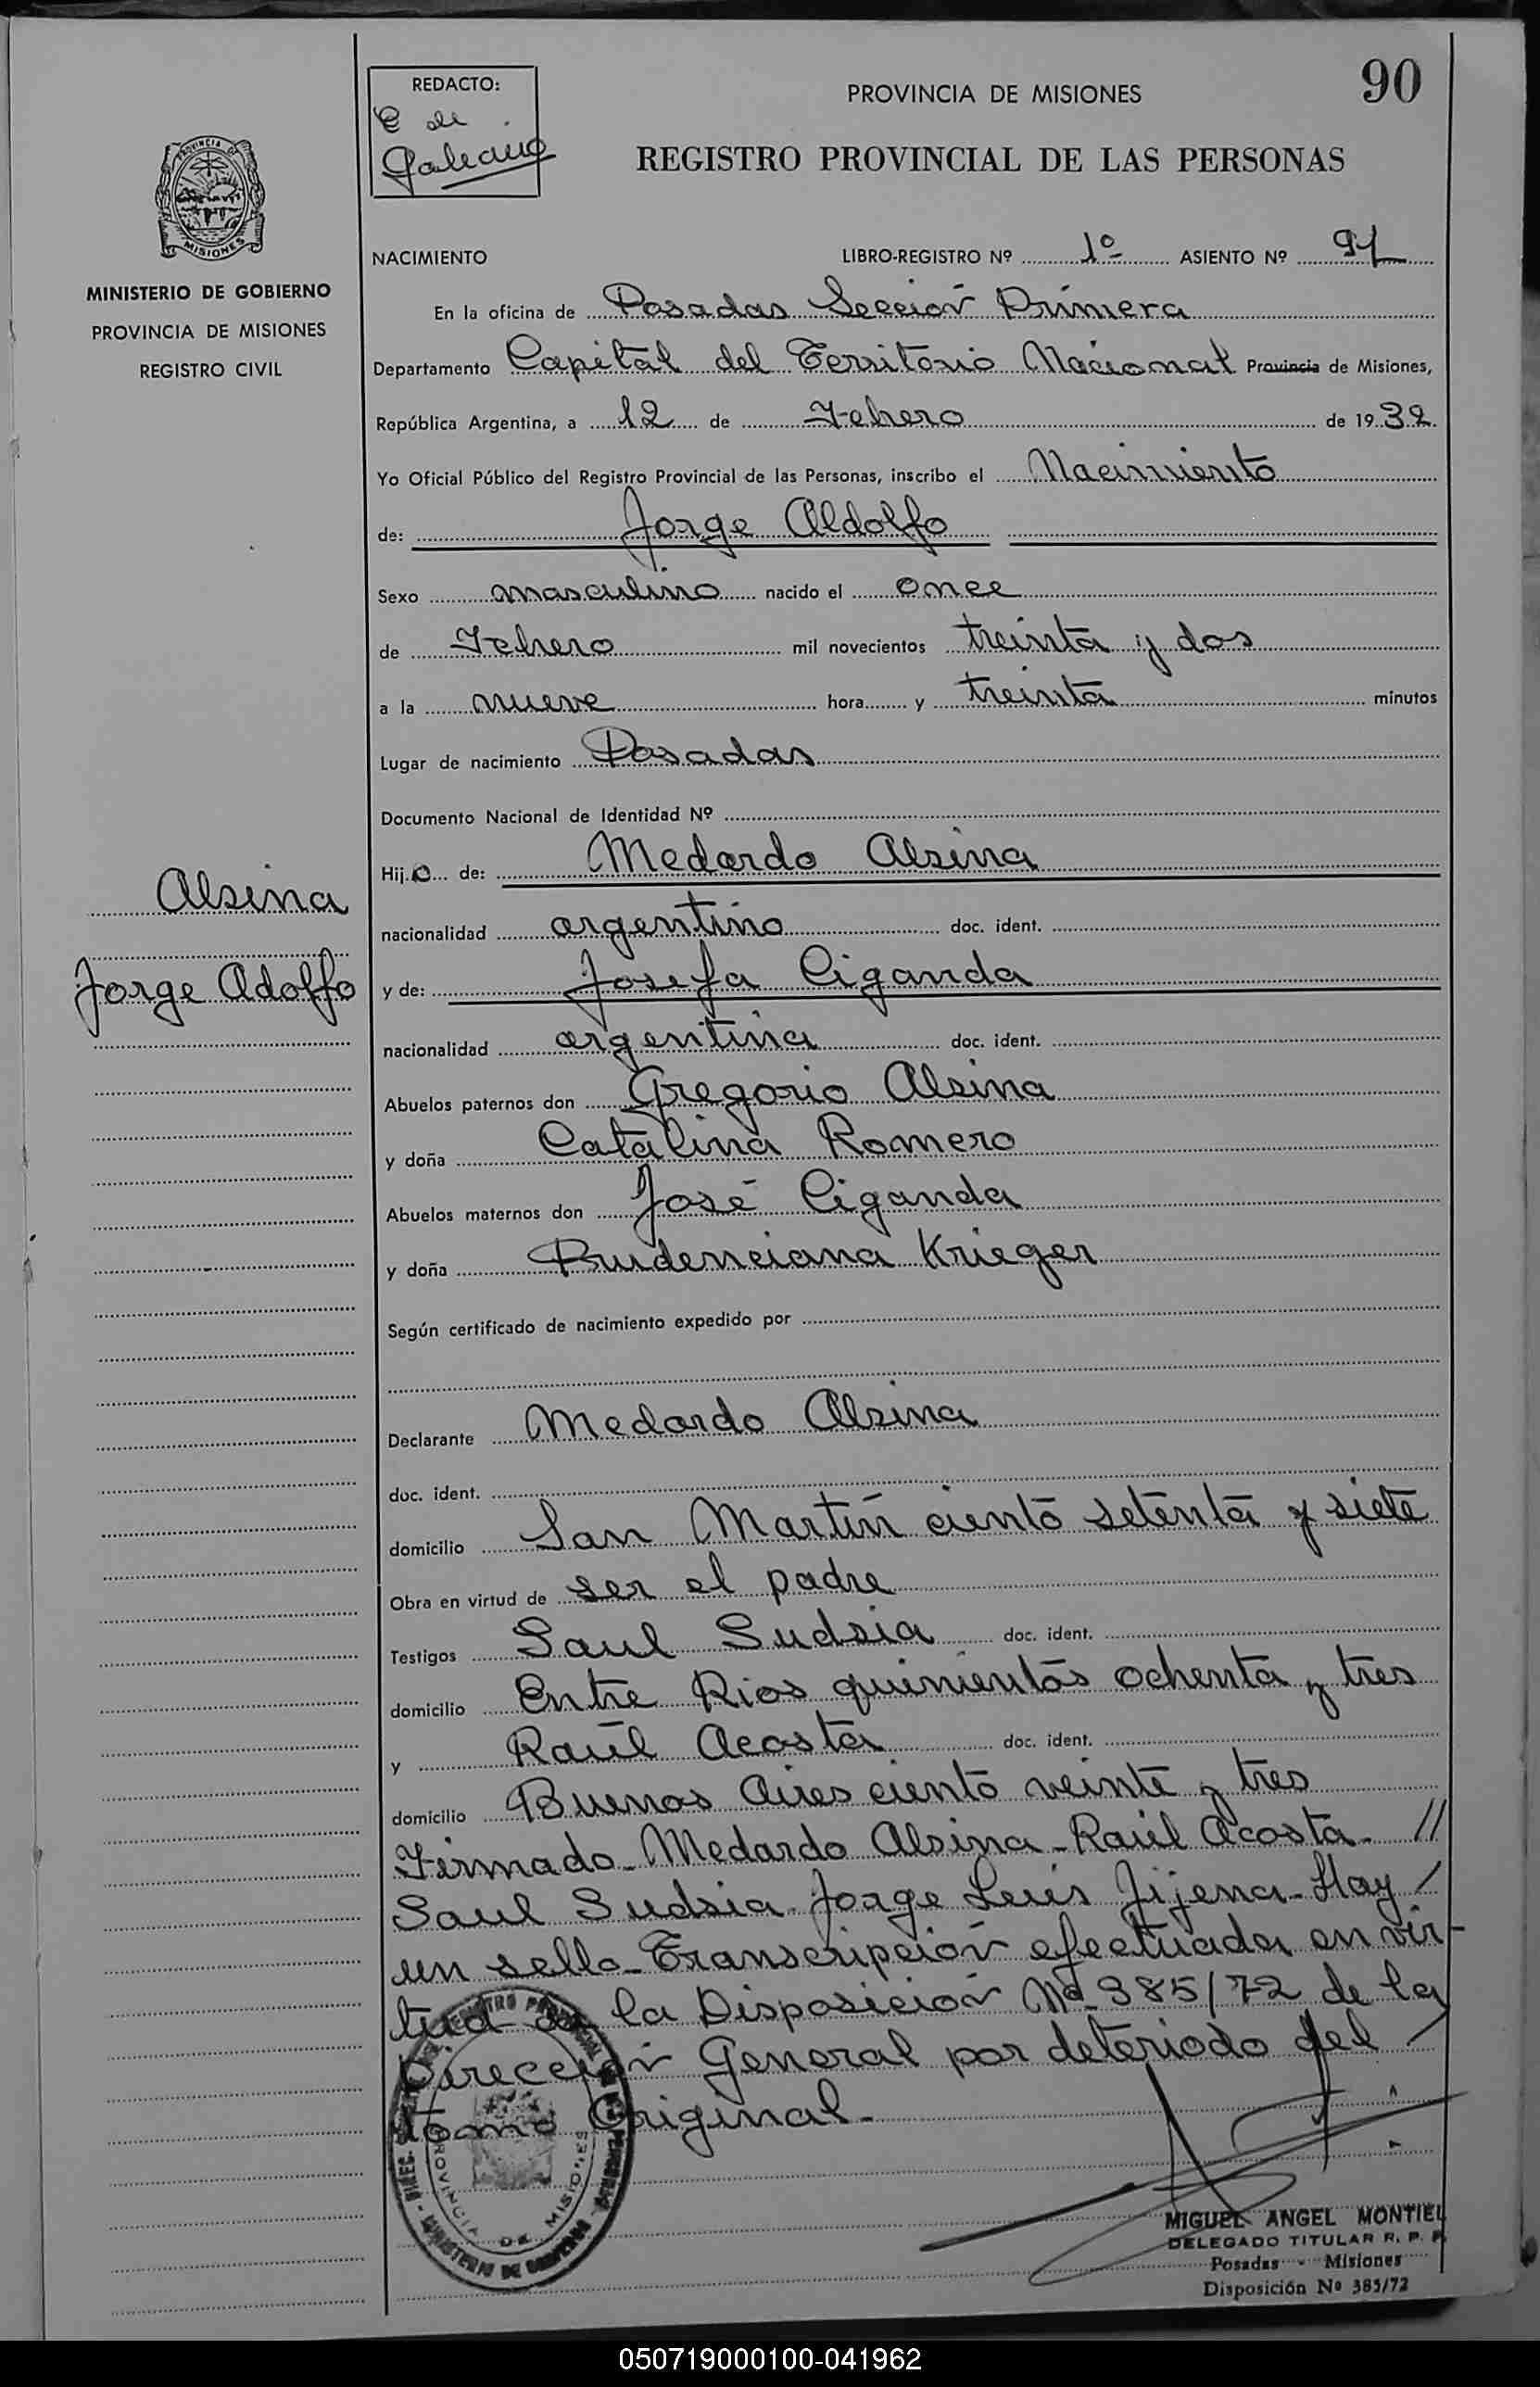 90
REDACTO:
E de
Galeano
PROVINCIA DE MISIONES
REGISTRO PROVINCIAL DE LAS PERSONAS
PROVINCIA DE
MISIONES
MINISTERIO DE GOBIERNO
PROVINCIA DE MISIONES
REGISTRO CIVIL
NACIMIENTO LIBRO-REGISTRO Nº 1º ASIENTO Nº 91
En la oficina de Posadas Sección Primera
Departamento Capital del Territorio Nacional Provincia de Misiones,
República Argentina, a 12 de Febrero de 1932.
Yo Oficial Público del Registro Provincial de las Personas, inscribo el Nacimiento
de: Jorge Aldolfo
Sexo masculino nacido el once
de Febrero mil novecientos treinta y dos
a la nueve hora y treinta minutos
Lugar de nacimiento Posadas
Documento Nacional de Identidad Nº
Hijo de: Medardo Alsina
nacionalidad argentino doc. ident.
y de: Josefa Ciganda
nacionalidad argentina doc. ident.
Abuelos paternos don Gregorio Alsina
y doña Catalina Romero
Abuelos maternos don José Ciganda
y doña Prudenciana Krieger
Según certificado de nacimiento expedido por
Declarante Medardo Alsina
doc. ident.
domicilio San Martín ciento setenta y siete
Obra en virtud de ser el padre
Testigos Saul Sudsia doc. ident.
domicilio Entre Rios quinientos ochenta y tres
y Raúl Acosta doc. ident.
domicilio Buenos Aires ciento veinte y tres
Firmado-Medardo Alsina-Raúl Acosta-//
Saul Sudsia-Jorge Luis Jijena-Hay/
un sello-Transcripción efectuada en vir-
tud de la Disposición Nº 385/72 de la
Dirección General por deteriodo del/
tomo Original.-
Alsina
Jorge Adolfo
PROVINCIA DE MISIONES
MINISTERIO DE GOBIERNO
MIGUEL ANGEL MONTIEL
DELEGADO TITULAR R. P. P.
Posadas - Misiones
Disposición Nº 385/72
050719000100-041962